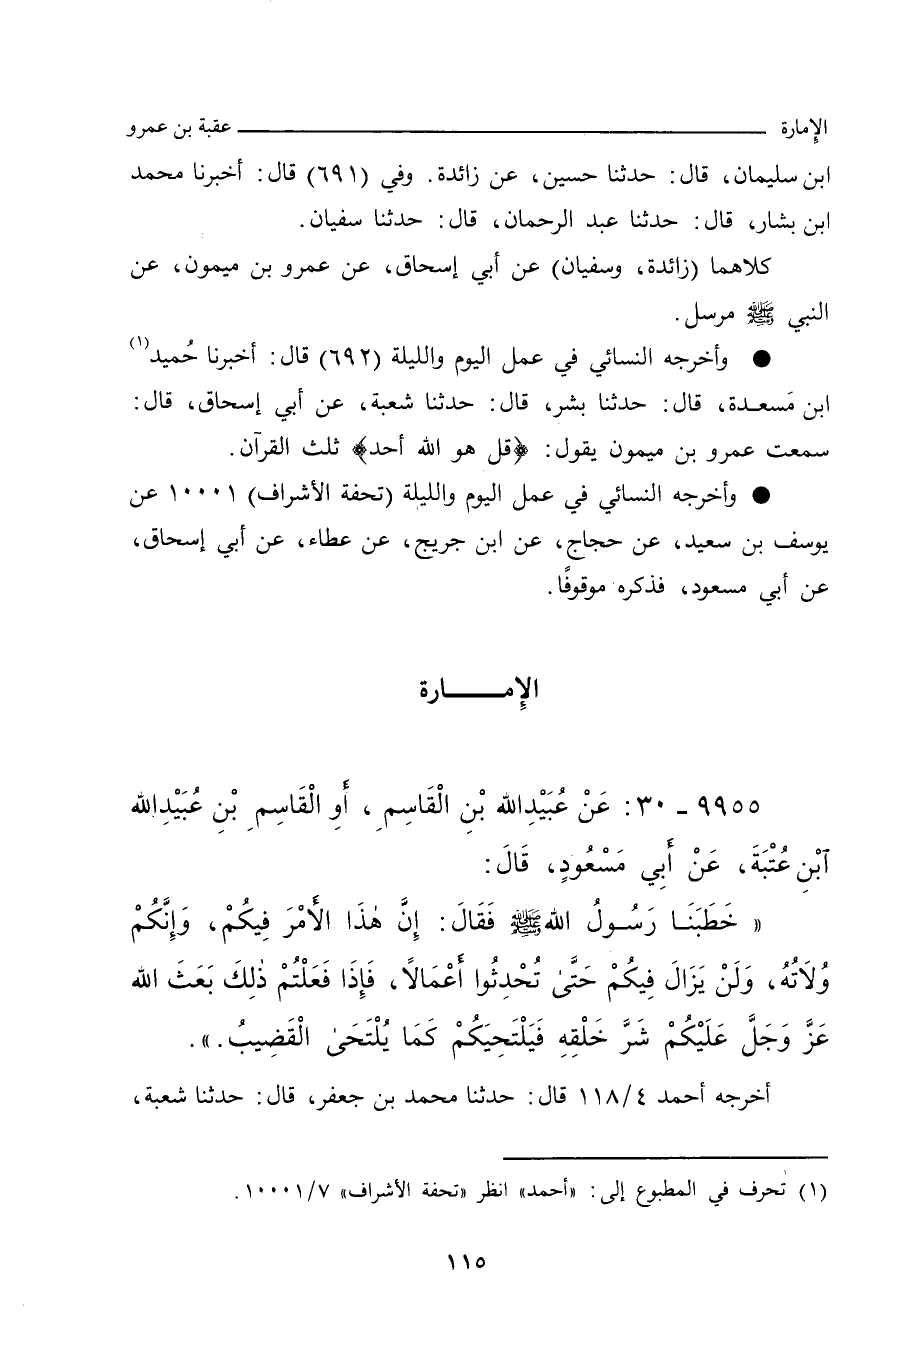 الإمارة ــــــــــــــــــــ عقبة بن عمرو
ابن سليمان، قال: حدثنا حسين، عن زائدة. وفي (٦٩١) قال: أخبرنا محمد
ابن بشار، قال: حدثنا عبد الرحمان، قال: حدثنا سفيان.
كلاهما (زائدة، وسفيان) عن أبي إسحاق، عن عمرو بن ميمون، عن
النبي ﷺ مرسل.
● وأخرجه النسائي في عمل اليوم والليلة (٦٩٢) قال: أخبرنا حُميد(١)
ابن مَسعدة، قال: حدثنا بشر، قال: حدثنا شعبة، عن أبي إسحاق، قال:
سمعت عمرو بن ميمون يقول: ﴿قل هو الله أحد﴾ ثلث القرآن.
● وأخرجه النسائي في عمل اليوم والليلة (تحفة الأشراف) ١٠٠٠١ عن
يوسف بن سعيد، عن حجاج، عن ابن جريج، عن عطاء، عن أبي إسحاق،
عن أبي مسعود، فذكره موقوفًا.
الإمـــــارة
٩٩٥٥ ـ ٣٠: عَنْ عُبَيْدِاللهِ بْنِ الْقَاسِمِ، أَوِ الْقَاسِمِ بْنِ عُبَيْدِاللهِ
آبْنِ عُتْبَةَ، عَنْ أَبِي مَسْعُودٍ، قَالَ:
« خَطَبَنَا رَسُولُ اللهِ ﷺ فَقَالَ: إِنَّ هٰذَا الْأَمْرَ فِيكُمْ، وَإِنَّكُمْ
وُلَاتُهُ، وَلَنْ يَزَالَ فِيكُمْ حَتَّىٰ تُحْدِثُوا أَعْمَالًا، فَإِذَا فَعَلْتُمْ ذٰلِكَ بَعَثَ اللهُ
عَزَّ وَجَلَّ عَلَيْكُمْ شَرَّ خَلْقِهِ فَيَلْتَحِيَكُمْ كَمَا يُلْتَحَىٰ الْقَضِيبُ.».
أخرجه أحمد ١١٨/٤ قال: حدثنا محمد بن جعفر، قال: حدثنا شعبة،
(١) تحرف في المطبوع إلى: «أحمد» انظر «تحفة الأشراف» ١٠٠٠١/٧.
١١٥